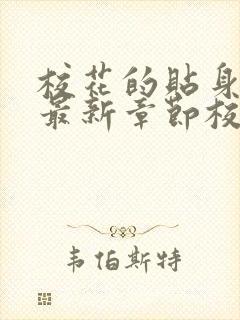 校花的贴身
最新章节校
韦伯斯特